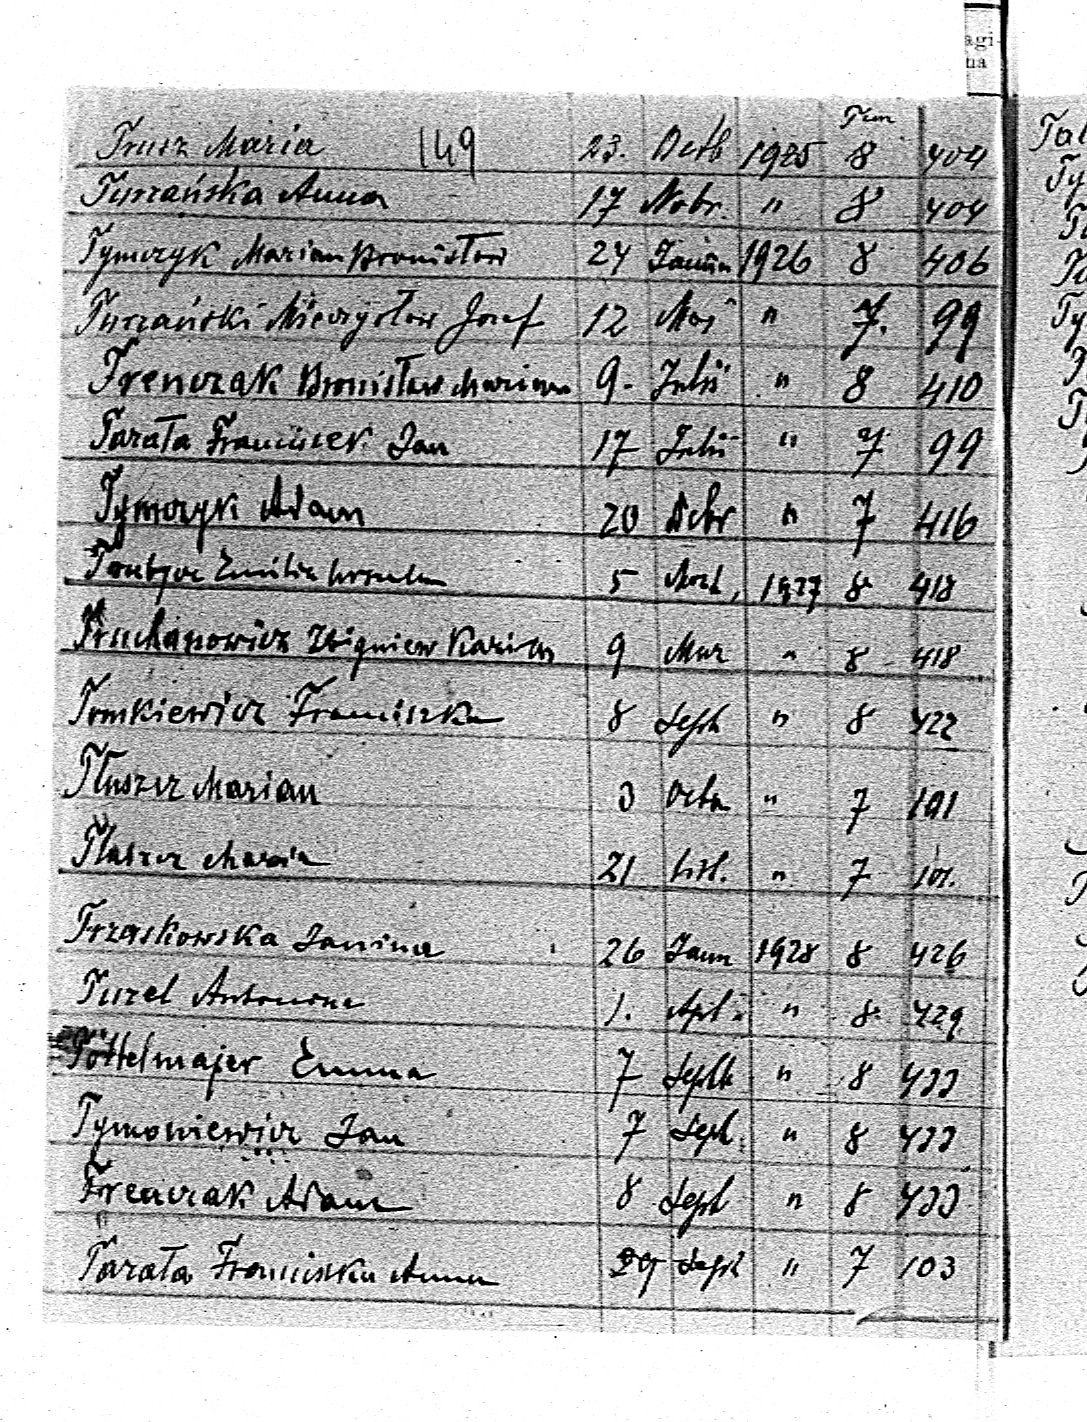 agi-
na
Tom
Trusz Maria 149 23. Octb 1925 8 404
Tyrzańska Anna 17 Nobr. " 8 404
Tymczyk Marian Bronisław 24 Januar 1926 8 406
Tyrzański Mieczysław Josef 12 Maj " 7. 99
Trenczak Bronisław Marian 9. Julii " 8 410
Tarała Franciszek Jan 17 Julii " 7 99
Tymczyk Adam 20 Debr " 7 416
Emilia 5 1927 8 418
Truchanowicz Zbigniew 9 Mar " 8 418
Tomkiewicz Franciszka 8 Sept " 8 422
Tłuszcz Marian 3 Octbr " 7 101
Tłuszcz Maria 21 " 7 101.
Trzaskowska Janina 26 Janu 1928 8 426
Turel Antonina 1. Apl " 8 429
Töttelmajer Emma 7 Septb " 8 433
Tymowiewicz Jan 7 Sept. " 8 433
Trenczak Adam 8 Sept " 8 433
Tarała Franciszka Anna 29 Sept " 7 103